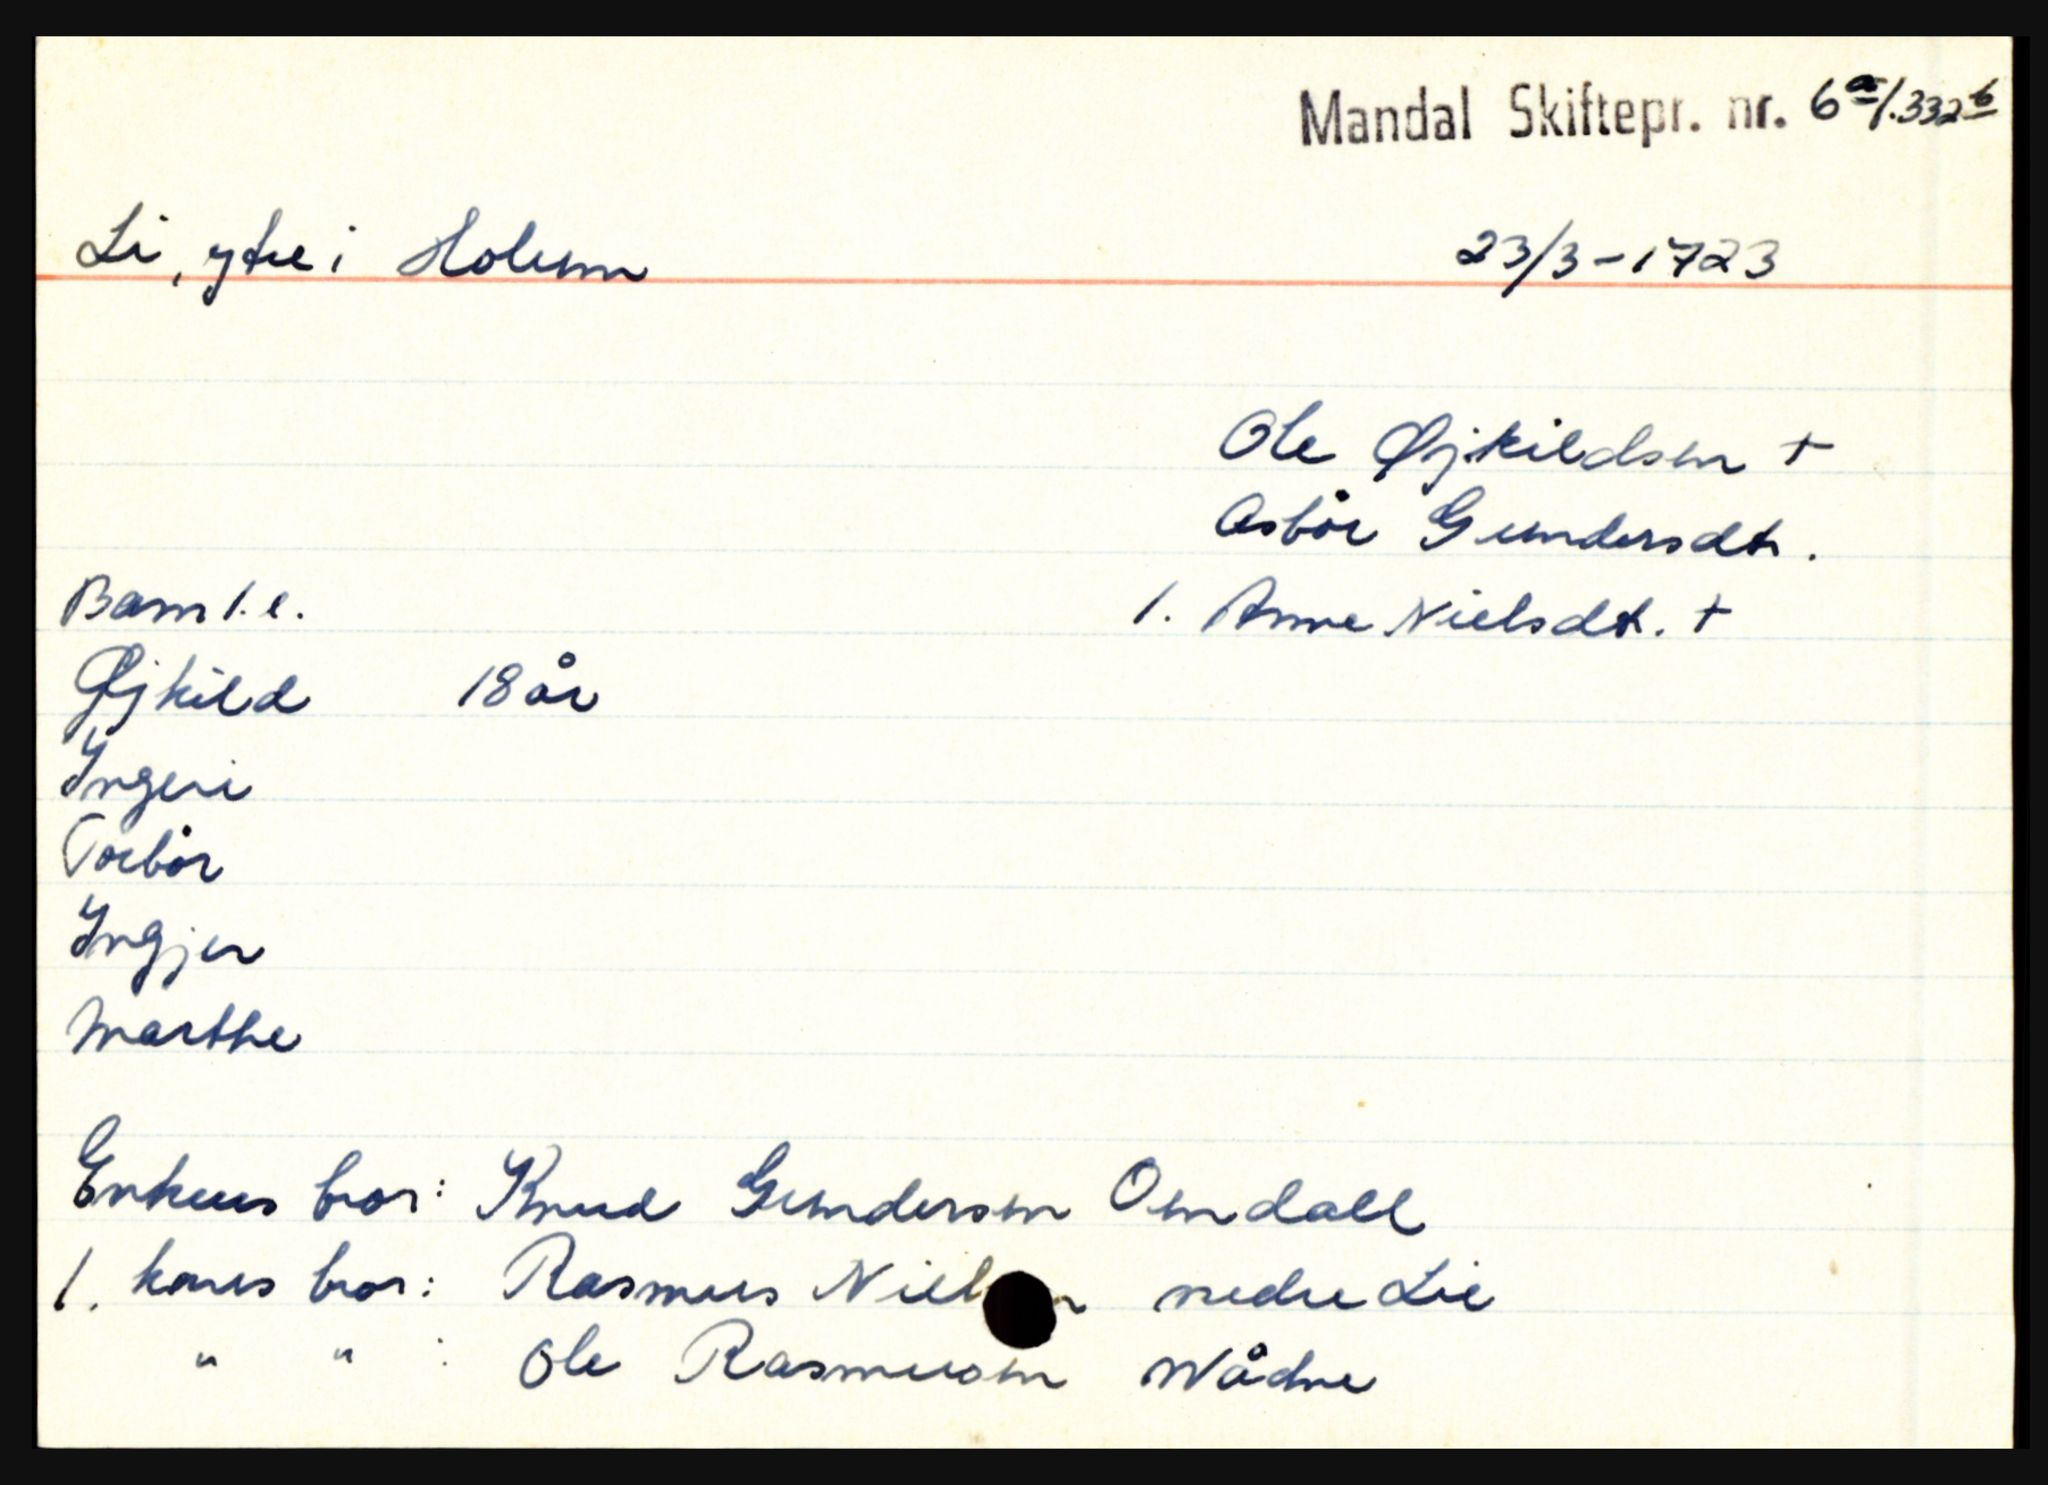 Mandal Skiftepr. nr. 6a/.332b
Li, ytre i Holum 23/3-1723
Ole Øjkildsen +
Asbår Gundersdt.
Barn 1.e. 1. Anne Nielsdt. +
Øjkild 18 år
Yngeri
Torbår
Yngjer
Marthe
Enkens bror: Knud Gundersen Omdall
1. kones bror: Rasmus nedre Lie
" " : Ole Rasmusen Wådne